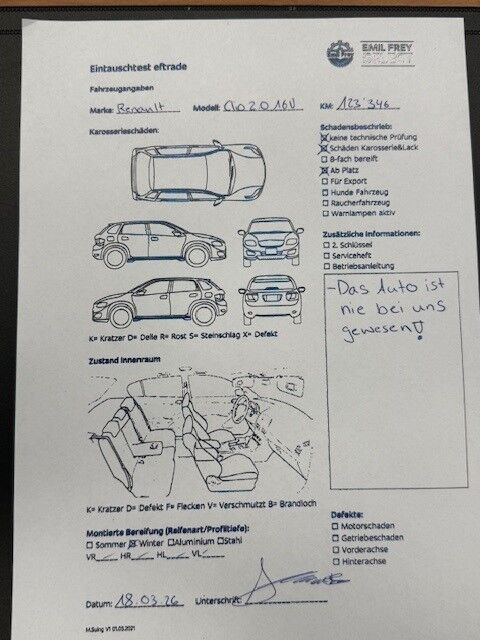 EMIL FREY
Emil Frey
Eintauschtest eftrade
Fahrzeugangaben
Marke: Renault Modell: Clio 2.0 16V KM: 123'346
Karosserieschäden:
Schadensbeschrieb:
☒ keine technische Prüfung
☒ Schäden Karosserie&Lack
☐ 8-fach bereift
☒ Ab Platz
☐ Für Export
☐ Hunde Fahrzeug
☐ Raucherfahrzeug
☐ Warnlampen aktiv
Zusätzliche Informationen:
☐ 2. Schlüssel
☐ Serviceheft
☐ Betriebsanleitung
- Das Auto ist
nie bei uns
gewesen!
K= Kratzer D= Delle R= Rost S= Steinschlag X= Defekt
Zustand Innenraum
K= Kratzer D= Defekt F= Flecken V= Verschmutzt B= Brandloch
Montierte Bereifung (Reifenart/Profiltiefe):
☐ Sommer ☒ Winter ☐ Aluminium ☐ Stahl
VR___ HR___ HL___ VL___
Defekte:
☐ Motorschaden
☐ Getriebeschaden
☐ Vorderachse
☐ Hinterachse
Datum: 18.03.26 Unterschrift:
M.Suing V1 01.03.2021